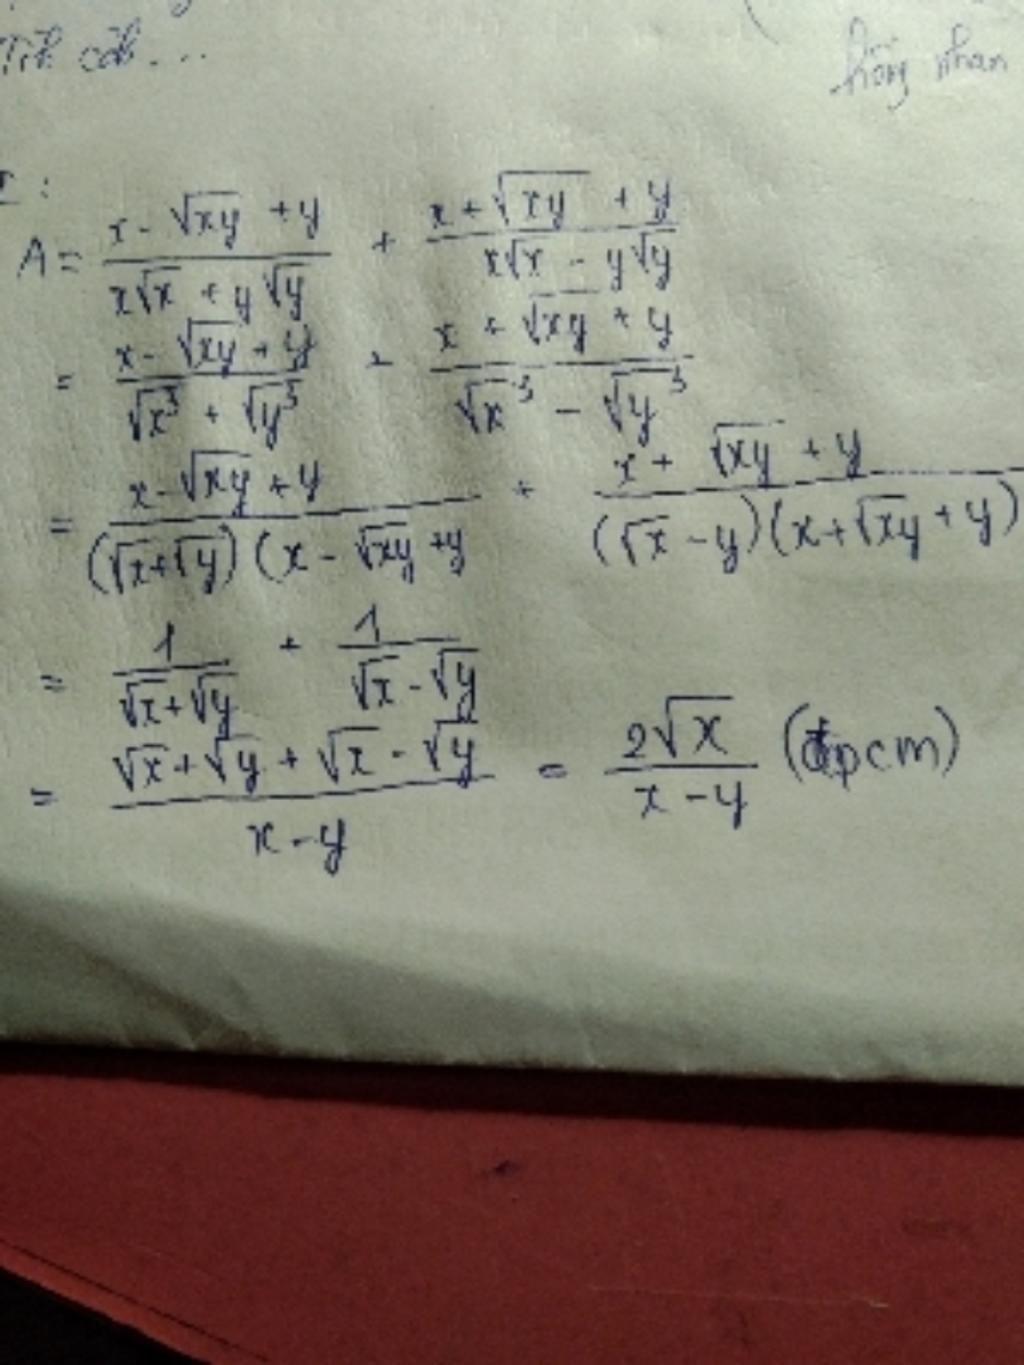 Tính
hồng nhan
A = \frac{x - \sqrt{xy} + y}{x\sqrt{x} + y\sqrt{y}} + \frac{x + \sqrt{xy} + y}{x\sqrt{x} - y\sqrt{y}}
= \frac{x - \sqrt{xy} + y}{\sqrt{x}^3 + \sqrt{y}^3} + \frac{x + \sqrt{xy} + y}{\sqrt{x}^3 - \sqrt{y}^3}
= \frac{x - \sqrt{xy} + y}{(\sqrt{x} + \sqrt{y})(x - \sqrt{xy} + y} + \frac{x + \sqrt{xy} + y}{(\sqrt{x} - y)(x + \sqrt{xy} + y)}
= \frac{1}{\sqrt{x} + \sqrt{y}} + \frac{1}{\sqrt{x} - \sqrt{y}}
= \frac{\sqrt{x} + \sqrt{y} + \sqrt{x} - \sqrt{y}}{x - y} = \frac{2\sqrt{x}}{x - y} (đpcm)